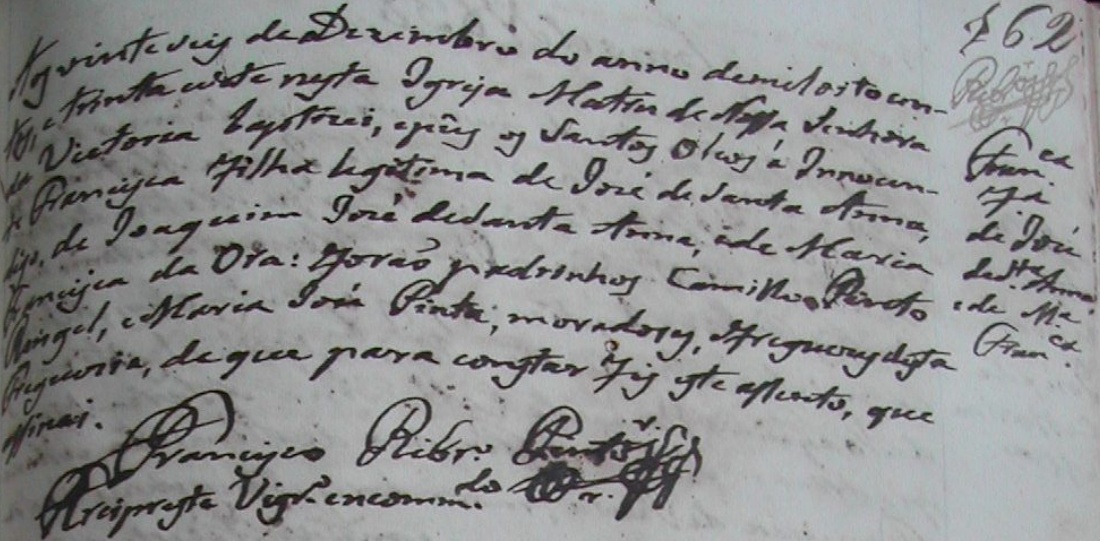 Aos vinte seis de Dezembro do anno de mil oito cen-
tos, e trinta e sete nesta Igreja Matriz de Nossa Senhora
da Victoria baptizei, e pûs os Santos Oleos á Innocen-
te Francisca Filha legitima de José de Santa Anna,
digo, de Joaquim José de Santa Anna, e de Maria
Francisca da Ora: Forão padrinhos Camillo Pinto
Rangel, e Maria José Pinta, moradores, e freguezes desta
Freguezia, de que para constar fiz este assento, que
assinei.
Francisco Ribro. Pinto
Arcipreste Vigr.º encommdo.
162
Franca
Fa
de José
de Sta Anna
e de Ma
Franca